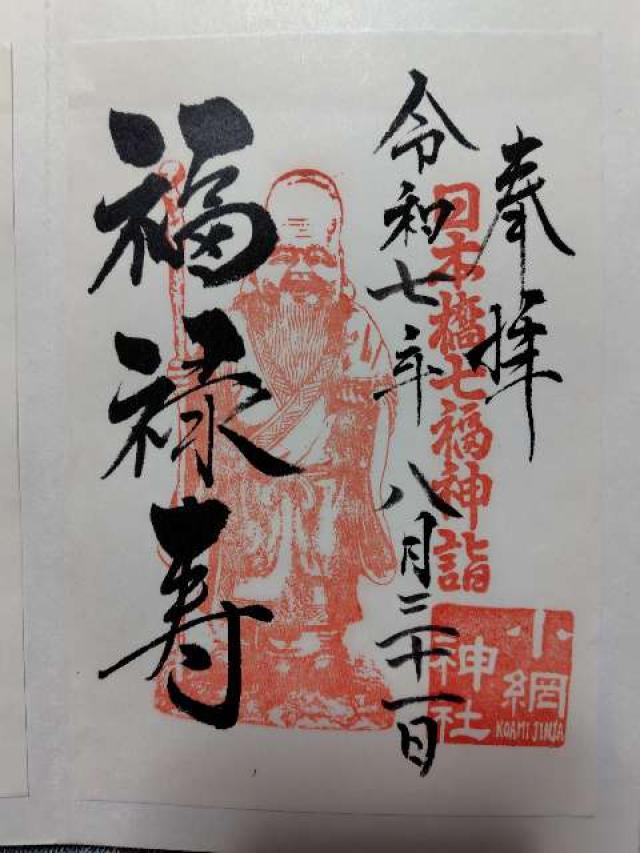 奉拝
日本橋七福神詣
令和七年八月三十一日
福禄寿
小網
神社
KOAMI JINJA